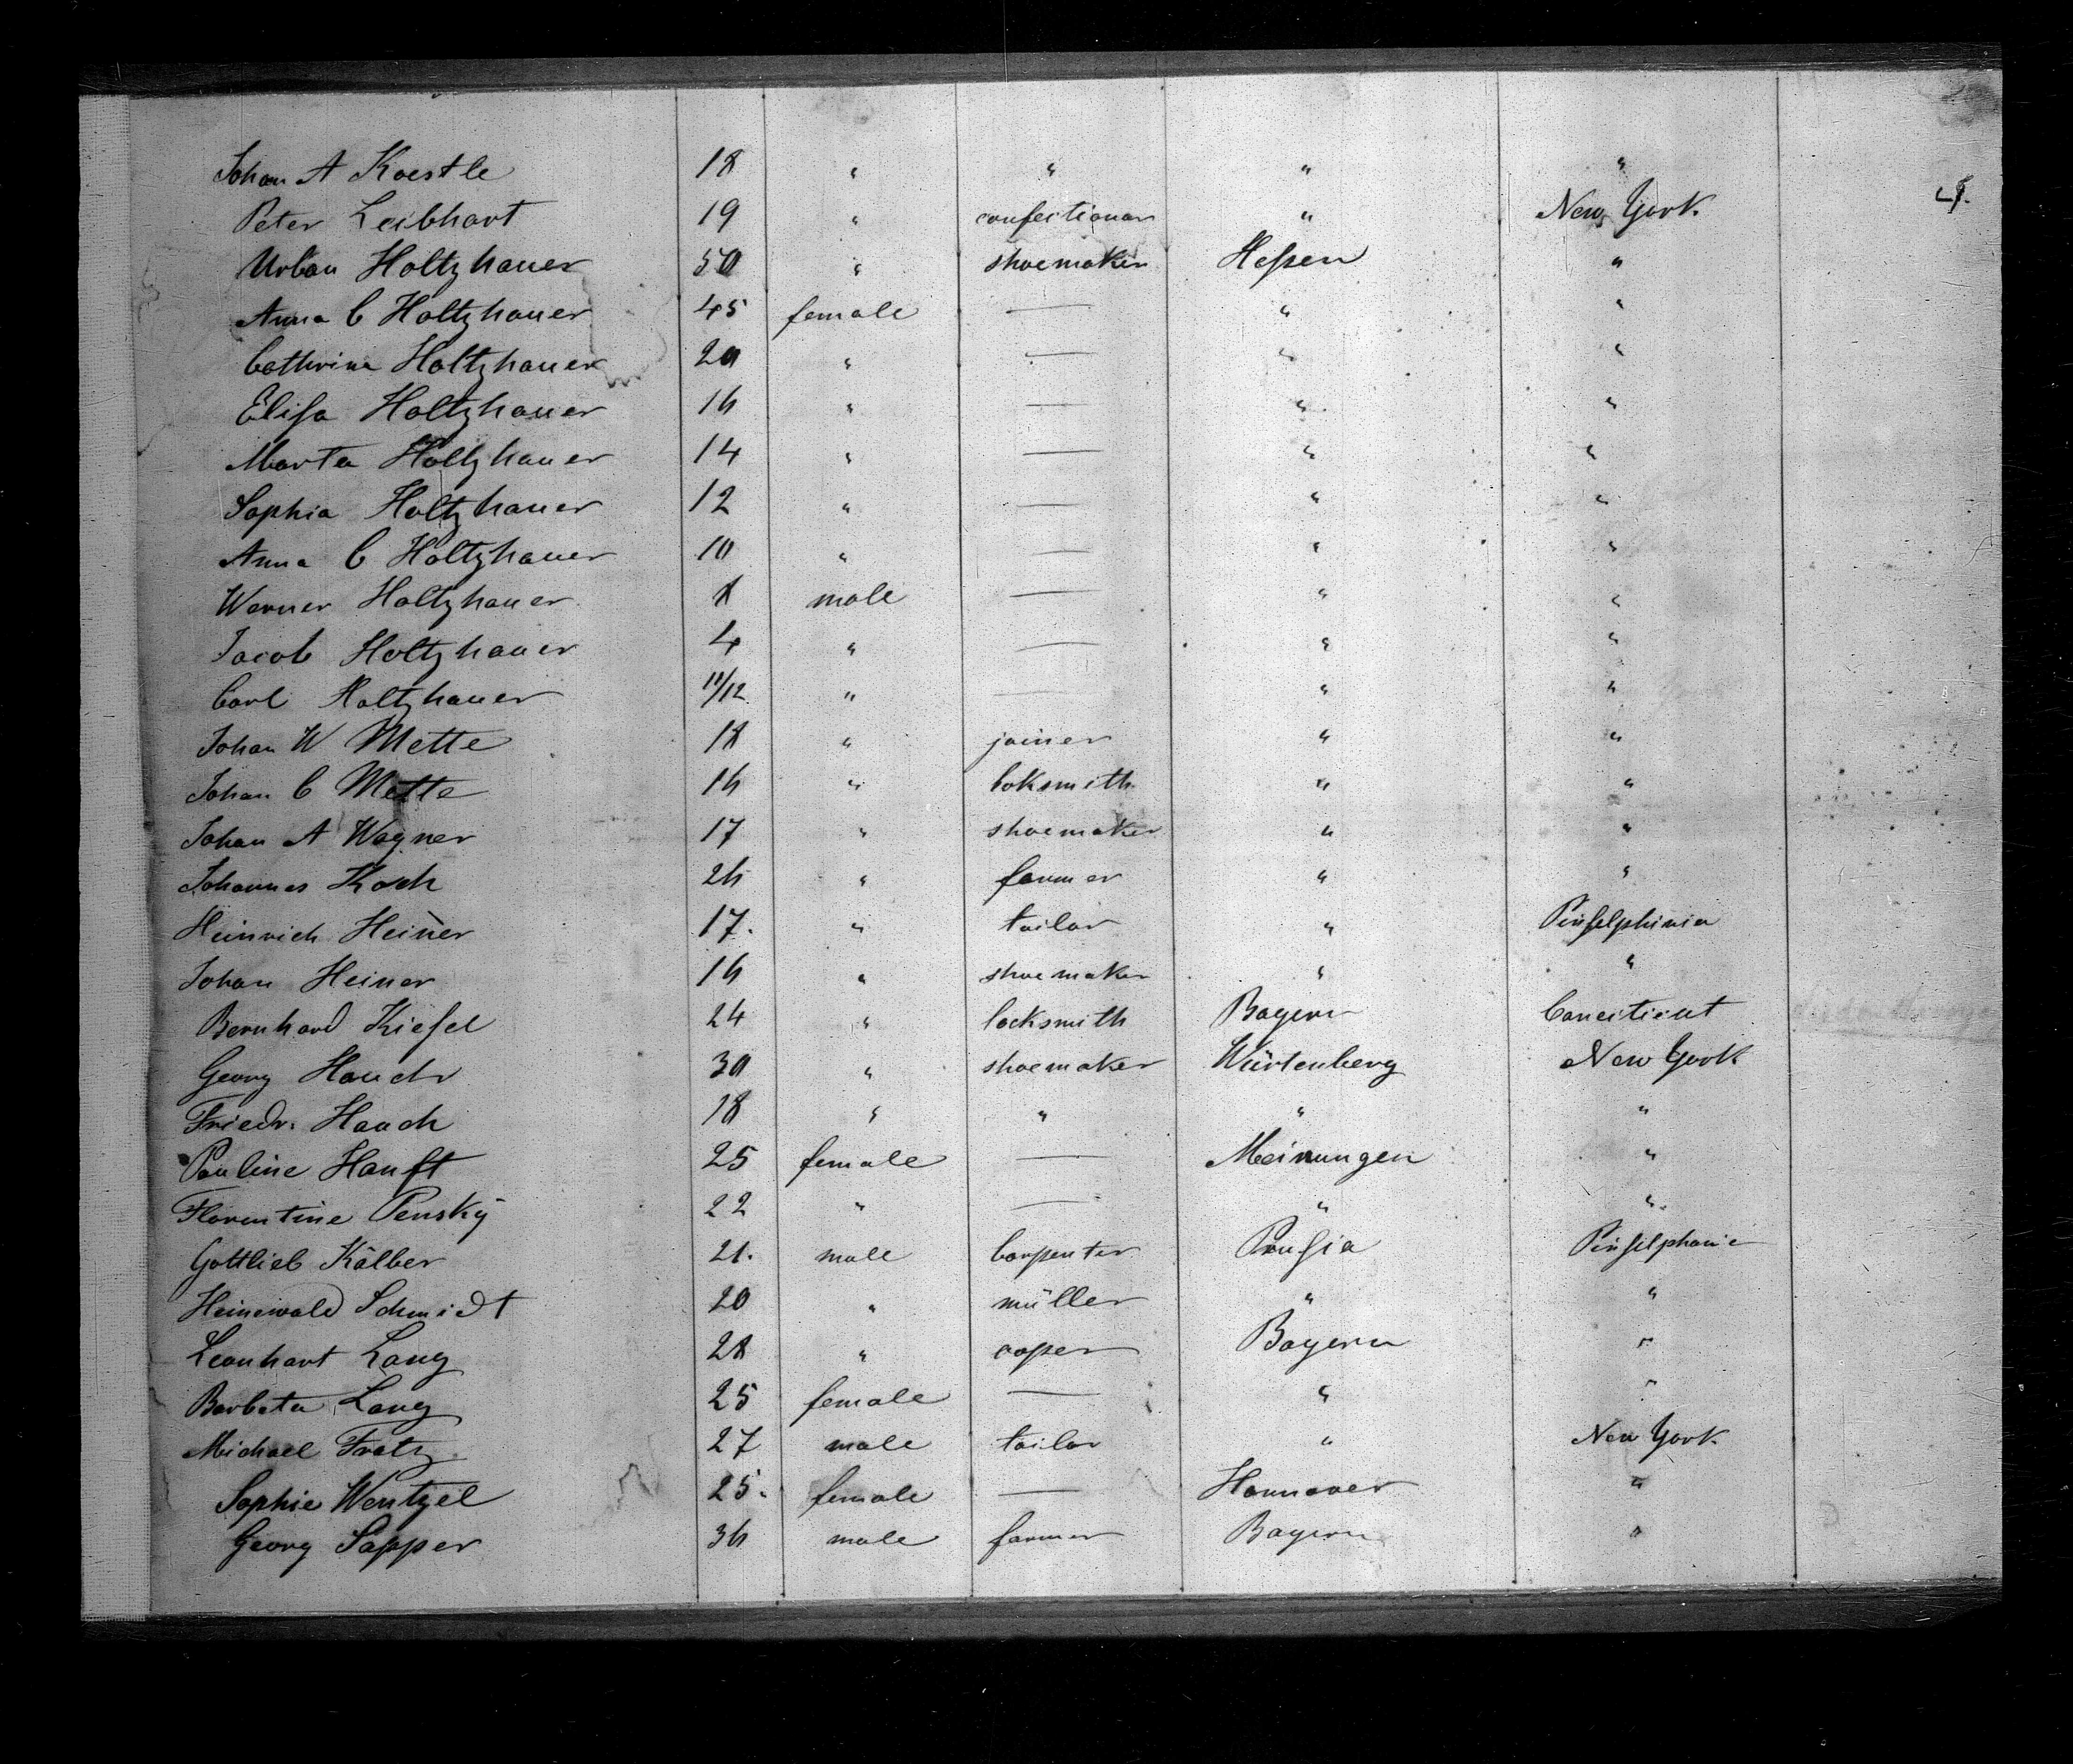 Johan A Koestle 18 " " " "
Peter Leibhart 19 " confectioner " New York
Urban Holtzhauer 50 " shoemaker Hessen "
Anna C Holtzhauer 45 female — " "
Cathrina Holtzhauer 20 " — " "
Elisa Holtzhauer 16 " — " "
Marta Holtzhauer 14 " — " "
Sophia Holtzhauer 12 " — " "
Anna C Holtzhauer 10 " — " "
Werner Holtzhauer 8 male — " "
Jacob Holtzhauer 4 " — " "
Carl Holtzhauer 11/12 " — " "
Johan W Mette 18 " joiner " "
Johan C Mette 16 " loksmith " "
Johan A Wagner 17 " shoemaker " "
Johannes Koch 26 " farmer " "
Heinrich Heiner 17. " tailor " Pinselphinia
Johan Heiner 16 " shoemaker " "
Bernhard Kiesel 24 " locksmith Bayern Conecticut
Georg Hauch 30 " shoemaker Würtenberg New York
Friedr. Hauch 18 " " " "
Pauline Hanft 25 female — Meinungen "
Florentine Pensky 22 " — " "
Gottlieb Kälber 21. male Carpenter Prusia Pinselphanie
Heinewald Schmidt 20 " müller " "
Leonhart Lang 28 " coper Bayern "
Barbata Lang 25 female — " "
Michael Fratz 27 male tailor " New York
Sophie Wentzel 25. female — Hannover "
Georg Sapper 36 male farmer Bayern "